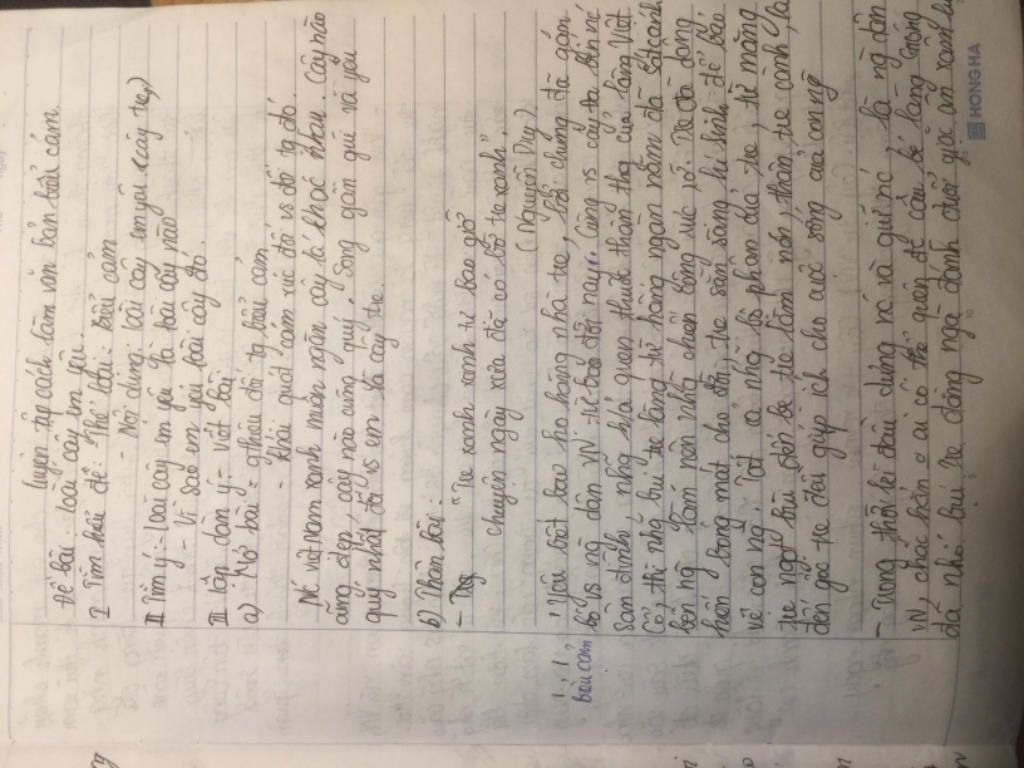 luyện tập cách làm văn bản biểu cảm.
Đề bài: loài cây em yêu.
I Tìm hiểu đề: - Thể loại: biểu cảm
- Nội dung: loài cây em yêu (cây tre)
II Tìm ý: - Loài cây em yêu là loài cây nào
- Vì sao em yêu loài cây đó.
III lập dàn ý: - viết bài
a) Mở bài: - gthiệu đối tg biểu cảm
- khái quát cảm xúc đối vs đối tg đó.
Nc việt nam xanh muôn ngàn cây lá khác nhau. Cây nào
cũng đẹp, cây nào cũng quý. Song gần gũi và yêu
quý nhất đối vs em là cây tre.
b) Thân bài:
- "Tre xanh xanh tự bao giờ
chuyện ngày xưa đã có bờ tre xanh"
(Nguyễn Duy)
Yêu biết bao họ hàng nhà tre, bởi chúng đã gắn
bó vs ng dân VN từ bao đời nay. Cùng vs cây đa, bến nc
sân đình, những khá quen thuộc thân thg của làng Việt
Cổ, thì những bụi tre làng từ hàng ngàn năm đã sát cánh
bên ng
hiến bóng mát cho đời, tre sẵn sàng hi sinh để bảo
vệ con ng. Tất cả những bộ phận của tre, từ măng
tre ngọt bùi đến bẹ tre làm nón, thân tre cành lá
đến gốc tre đều giúp ích cho cuộc sống của con ng
- Trong thời kì đầu dựng nc và giữ nc, là ng dân
VN, chắc hẳn ai có thể quên đc cậu bé làng Gióng
đã nhổ bụi tre đằng ngà đánh đuổi giặc ân xâm lược
biểu cảm
HONG HA